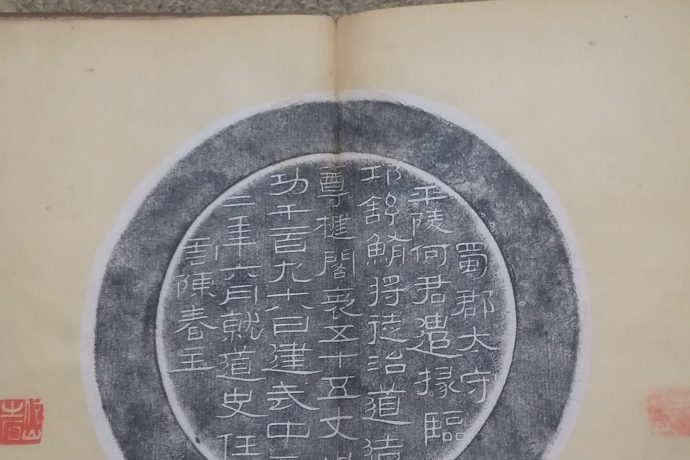 蜀郡大守
平陵何君遣掾臨
邛舒鮪將徒治道造
尊楗閣袤五十五丈
功千百九十八日建武中
二年六月就道史任
陳春主